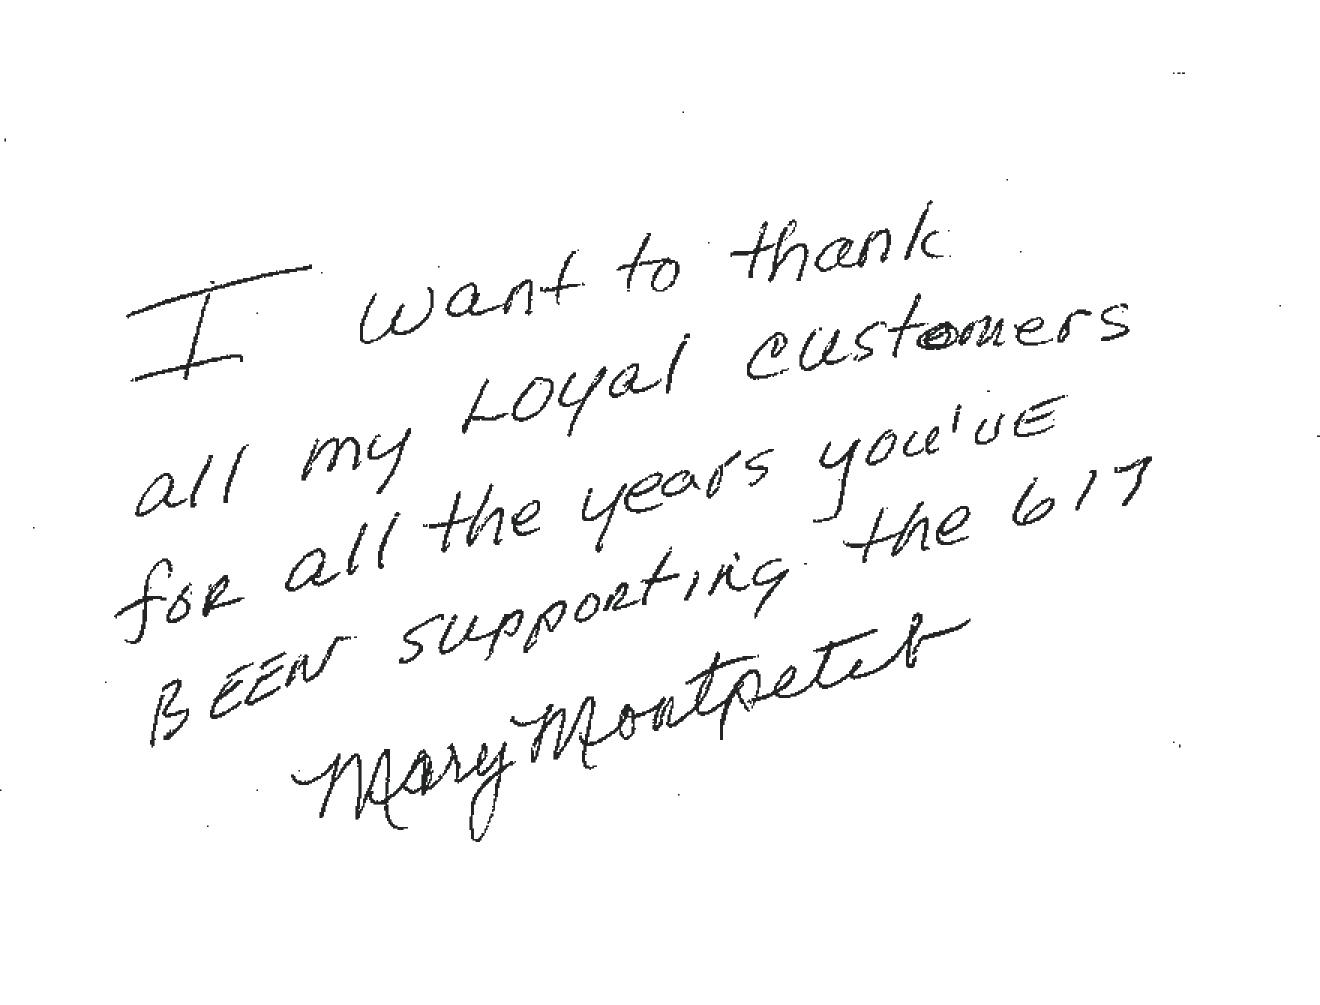 I want to thank
all my Loyal customers
for all the years you've
BEEN supporting the 617
Mary